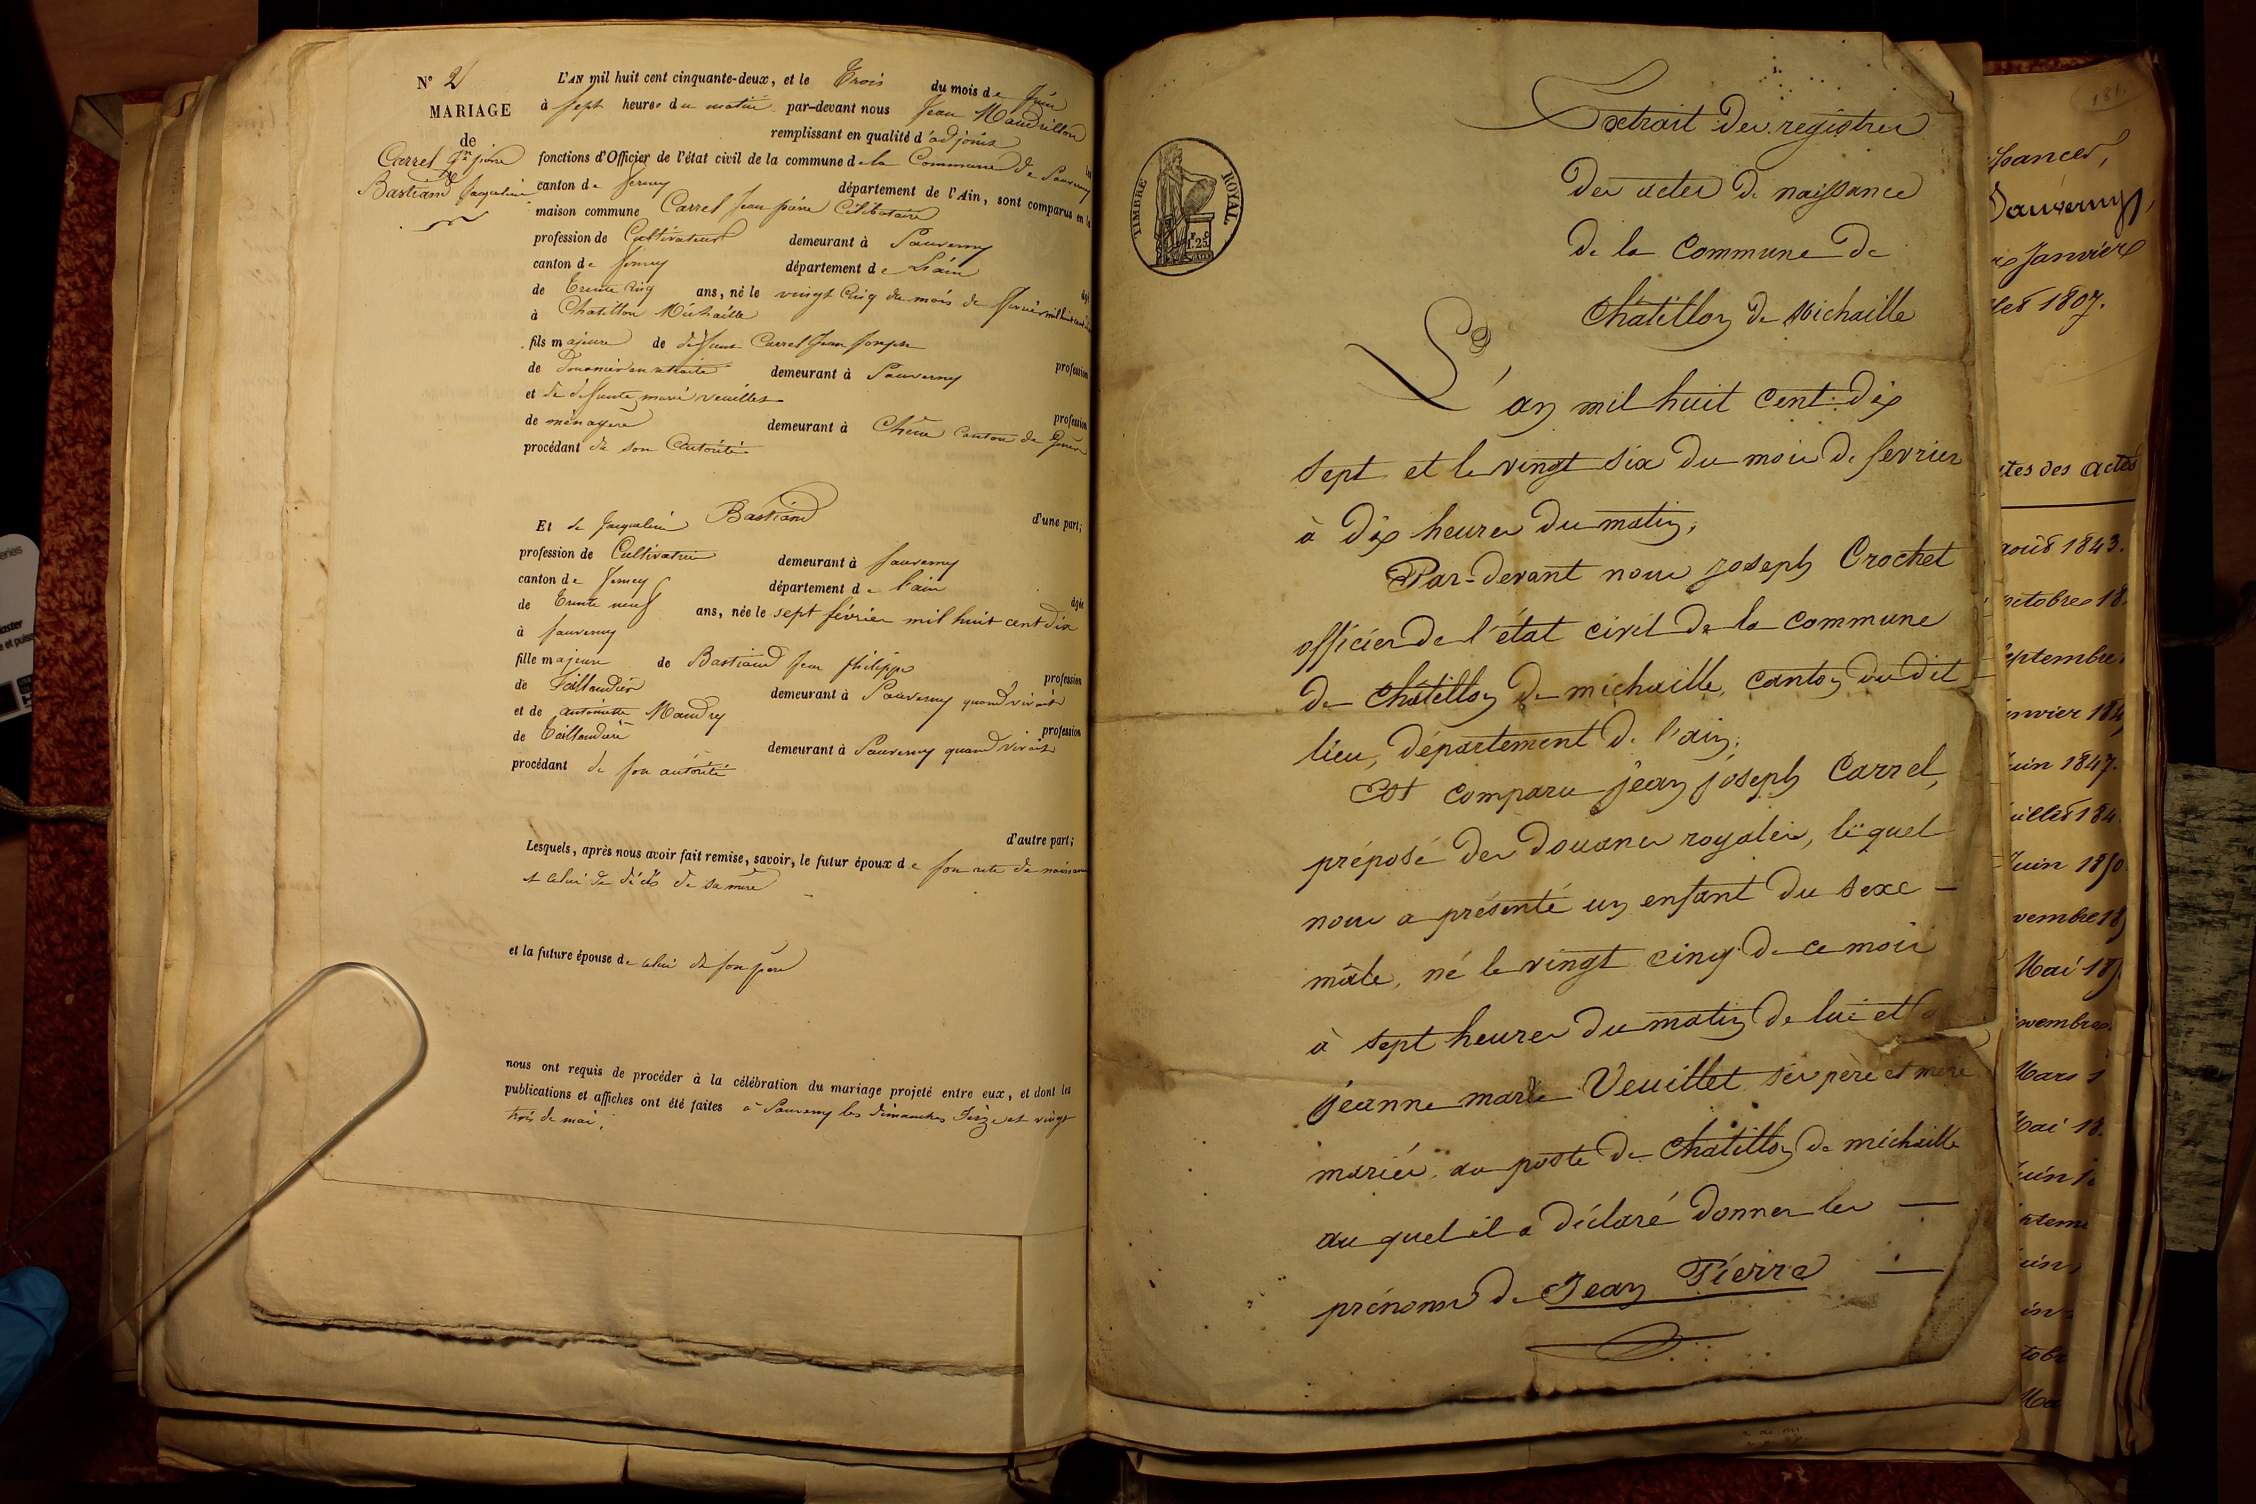 N° 2
MARIAGE
de
Carrel Jn pierre
Bastiand Jacqueline
L'AN mil huit cent cinquante-deux, et le Trois du mois de Juin
à Sept heures du matin par-devant nous Jean Maudrillon
remplissant en qualité d'adjoint les
fonctions d'Officier de l'état civil de la commune de la Commune de Sauverny
canton de ferney département de l'Ain, sont comparus en la
maison commune Carrel Jean pierre Célibataire
profession de Cultivateur demeurant à Sauverny
canton de ferney département de L'ain
de Trente Cinq ans, né le vingt Cinq du mois de fevrier mil huit cent âgé
à Chatillon Michaille
fils majeure de défunt Carrel Jean Joseph
de Douanier en retraite demeurant à Sauverny profession
et de défunte marie veuillet
de ménagère demeurant à Chêne Canton de profession
procédant de son autorité
d'une part;
Et de Jacqueline Bastiand
profession de Cultivatrice demeurant à Sauverny
canton de ferney département de l'ain
de Trente neuf ans, née le sept février mil huit cent dix âgée
à Sauverny
fille majeure de Bastiand Jean philippe
de Taillandier demeurant à Sauverny quand vivait profession
et de antoinette Maudry
de Taillandière demeurant à Sauverny quand vivait profession
procédant de son autorité
d'autre part;
Lesquels, après nous avoir fait remise, savoir, le futur époux de son acte de naissance
et celui de décès de sa mère
et la future épouse de celui de son père
nous ont requis de procéder à la célébration du mariage projeté entre eux, et dont les
publications et affiches ont été faites à Sauverny les dimanches Seize et vingt
trois de mai,
TIMBRE ROYAL
1.25
Extrait des registres
des actes de naissance
de la Commune de
Châtillon de Michaille
L'an mil huit cent dix
sept et le vingt six du mois de fevrier
à dix heures du matin,
Par-devant nous joseph Crochet
officier de l'état civil de la commune
de Châtillon de michaille, canton du dit
lieu, département de l'ain;
Est comparu jean joseph Carrel,
préposé des douanes royales, lequel
nous a présenté un enfant du sexe
mâle, né le vingt cinq de ce mois
à sept heures du matin de lui et
jeanne marie Veuillet ses père et mère
mariés, au poste de Chatillon de michaille
au quel il a déclaré donner les
prénoms de Jean Pierre
181.
Sauverny,
Janvier
1807.
des actes
août 1843.
octobre 18
septembre
janvier 184
juin 1847.
juillet 184
Juin 1850
vembre 18
Mai 18
novembre
Mars
Mai 18
juin